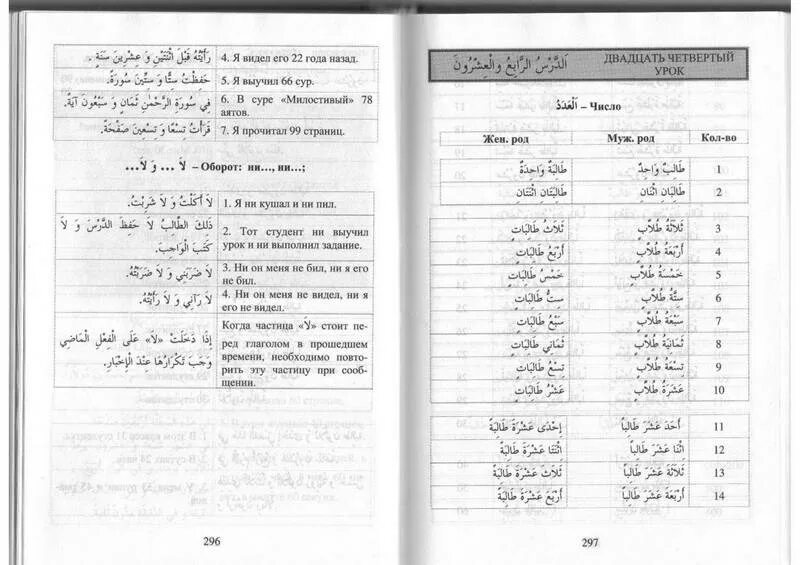 رَأَيْتُهُ قَبْلَ اثْنَتَيْنِ وَ عِشْرِينَ سَنَةٍ .
4. Я видел его 22 года назад.
حَفِظْتُ سِتًّا وَ سِتِّينَ سُورَةً.
5. Я выучил 66 сур.
فِي سُورَةِ الرَّحْمٰنِ ثَمَانٍ وَ سَبْعُونَ آيَةً.
6. В суре «Милостивый» 78
аятов.
قَرَأْتُ تِسْعًا وَ تِسْعِينَ صَفْحَةً.
7. Я прочитал 99 страниц.
لاَ ... وَ لاَ... – Оборот: ни..., ни...;
لاَ أَكَلْتُ وَ لاَ شَرِبْتُ.
1. Я ни кушал и ни пил.
ذَلِكَ الطَّالِبُ لاَ حَفِظَ الدَّرْسَ وَ لاَ
كَتَبَ الْوَاجِبَ.
2. Тот студент ни выучил
урок и ни выполнил задание.
لاَ ضَرَبَنِي وَ لاَ ضَرَبْتُهُ.
3. Ни он меня не бил, ни я его
не бил.
لاَ رَآنِي وَ لاَ رَأَيْتُهُ.
4. Ни он меня не видел, ни я
его не видел.
إِذَا دَخَلَتْ «لاَ» عَلَى الْفِعْلِ الْمَاضِي
وَجَبَ تَكْرَارُهَا عِنْدَ الْإِخْبَارِ.
Когда частица «لاَ» стоит пе-
ред глаголом в прошедшем
времени, необходимо повто-
рить эту частицу при сооб-
щении.
296
اَلدَّرْسُ الرَّابِعُ وَالْعِشْرُونَ
ДВАДЦАТЬ ЧЕТВЕРТЫЙ
УРОК
اَلْعَدَدُ – Число
Жен. род Муж. род Кол-во
طَالِبَةٌ وَاحِدَةٌ طَالِبٌ وَاحِدٌ 1
طَالِبَتَانِ اثْنَتَانِ طَالِبَانِ اثْنَانِ 2
ثَلاَثُ طَالِبَاتٍ ثَلاَثَةُ طُلاَّبٍ 3
أَرْبَعُ طَالِبَاتٍ أَرْبَعَةُ طُلاَّبٍ 4
خَمْسُ طَالِبَاتٍ خَمْسَةُ طُلاَّبٍ 5
سِتُّ طَالِبَاتٍ سِتَّةُ طُلاَّبٍ 6
سَبْعُ طَالِبَاتٍ سَبْعَةُ طُلاَّبٍ 7
ثَمَانِي طَالِبَاتٍ ثَمَانِيَةُ طُلاَّبٍ 8
تِسْعُ طَالِبَاتٍ تِسْعَةُ طُلاَّبٍ 9
عَشْرُ طَالِبَاتٍ عَشَرَةُ طُلاَّبٍ 10
إِحْدَى عَشْرَةَ طَالِبَةً أَحَدَ عَشَرَ طَالِباً 11
اثْنَتَا عَشْرَةَ طَالِبَةً اثْنَا عَشَرَ طَالِباً 12
ثَلاَثَ عَشْرَةَ طَالِبَةً ثَلاَثَةَ عَشَرَ طَالِباً 13
أَرْبَعَ عَشْرَةَ طَالِبَةً أَرْبَعَةَ عَشَرَ طَالِباً 14
297